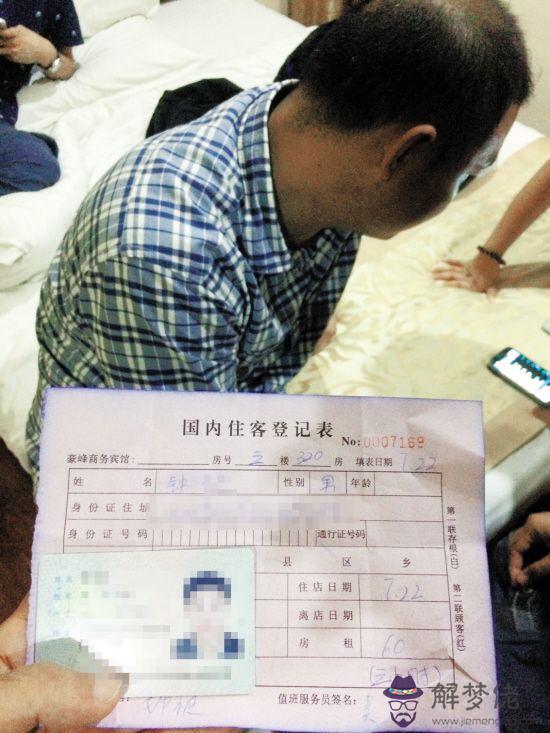 国内住客登记表
No:0007169
豪峰商务宾馆: 房号 三 楼 320 房 填表日期 7.22
姓 名 钟 性别 男 年龄
身份证住址
身份证号码 通行证号码
县 区 乡
住店日期 7.22
离店日期
房 租 60
值班服务员签名:
第一联存根(白)
第二联顾客(红)
解梦佬
www.jiemenglao.com